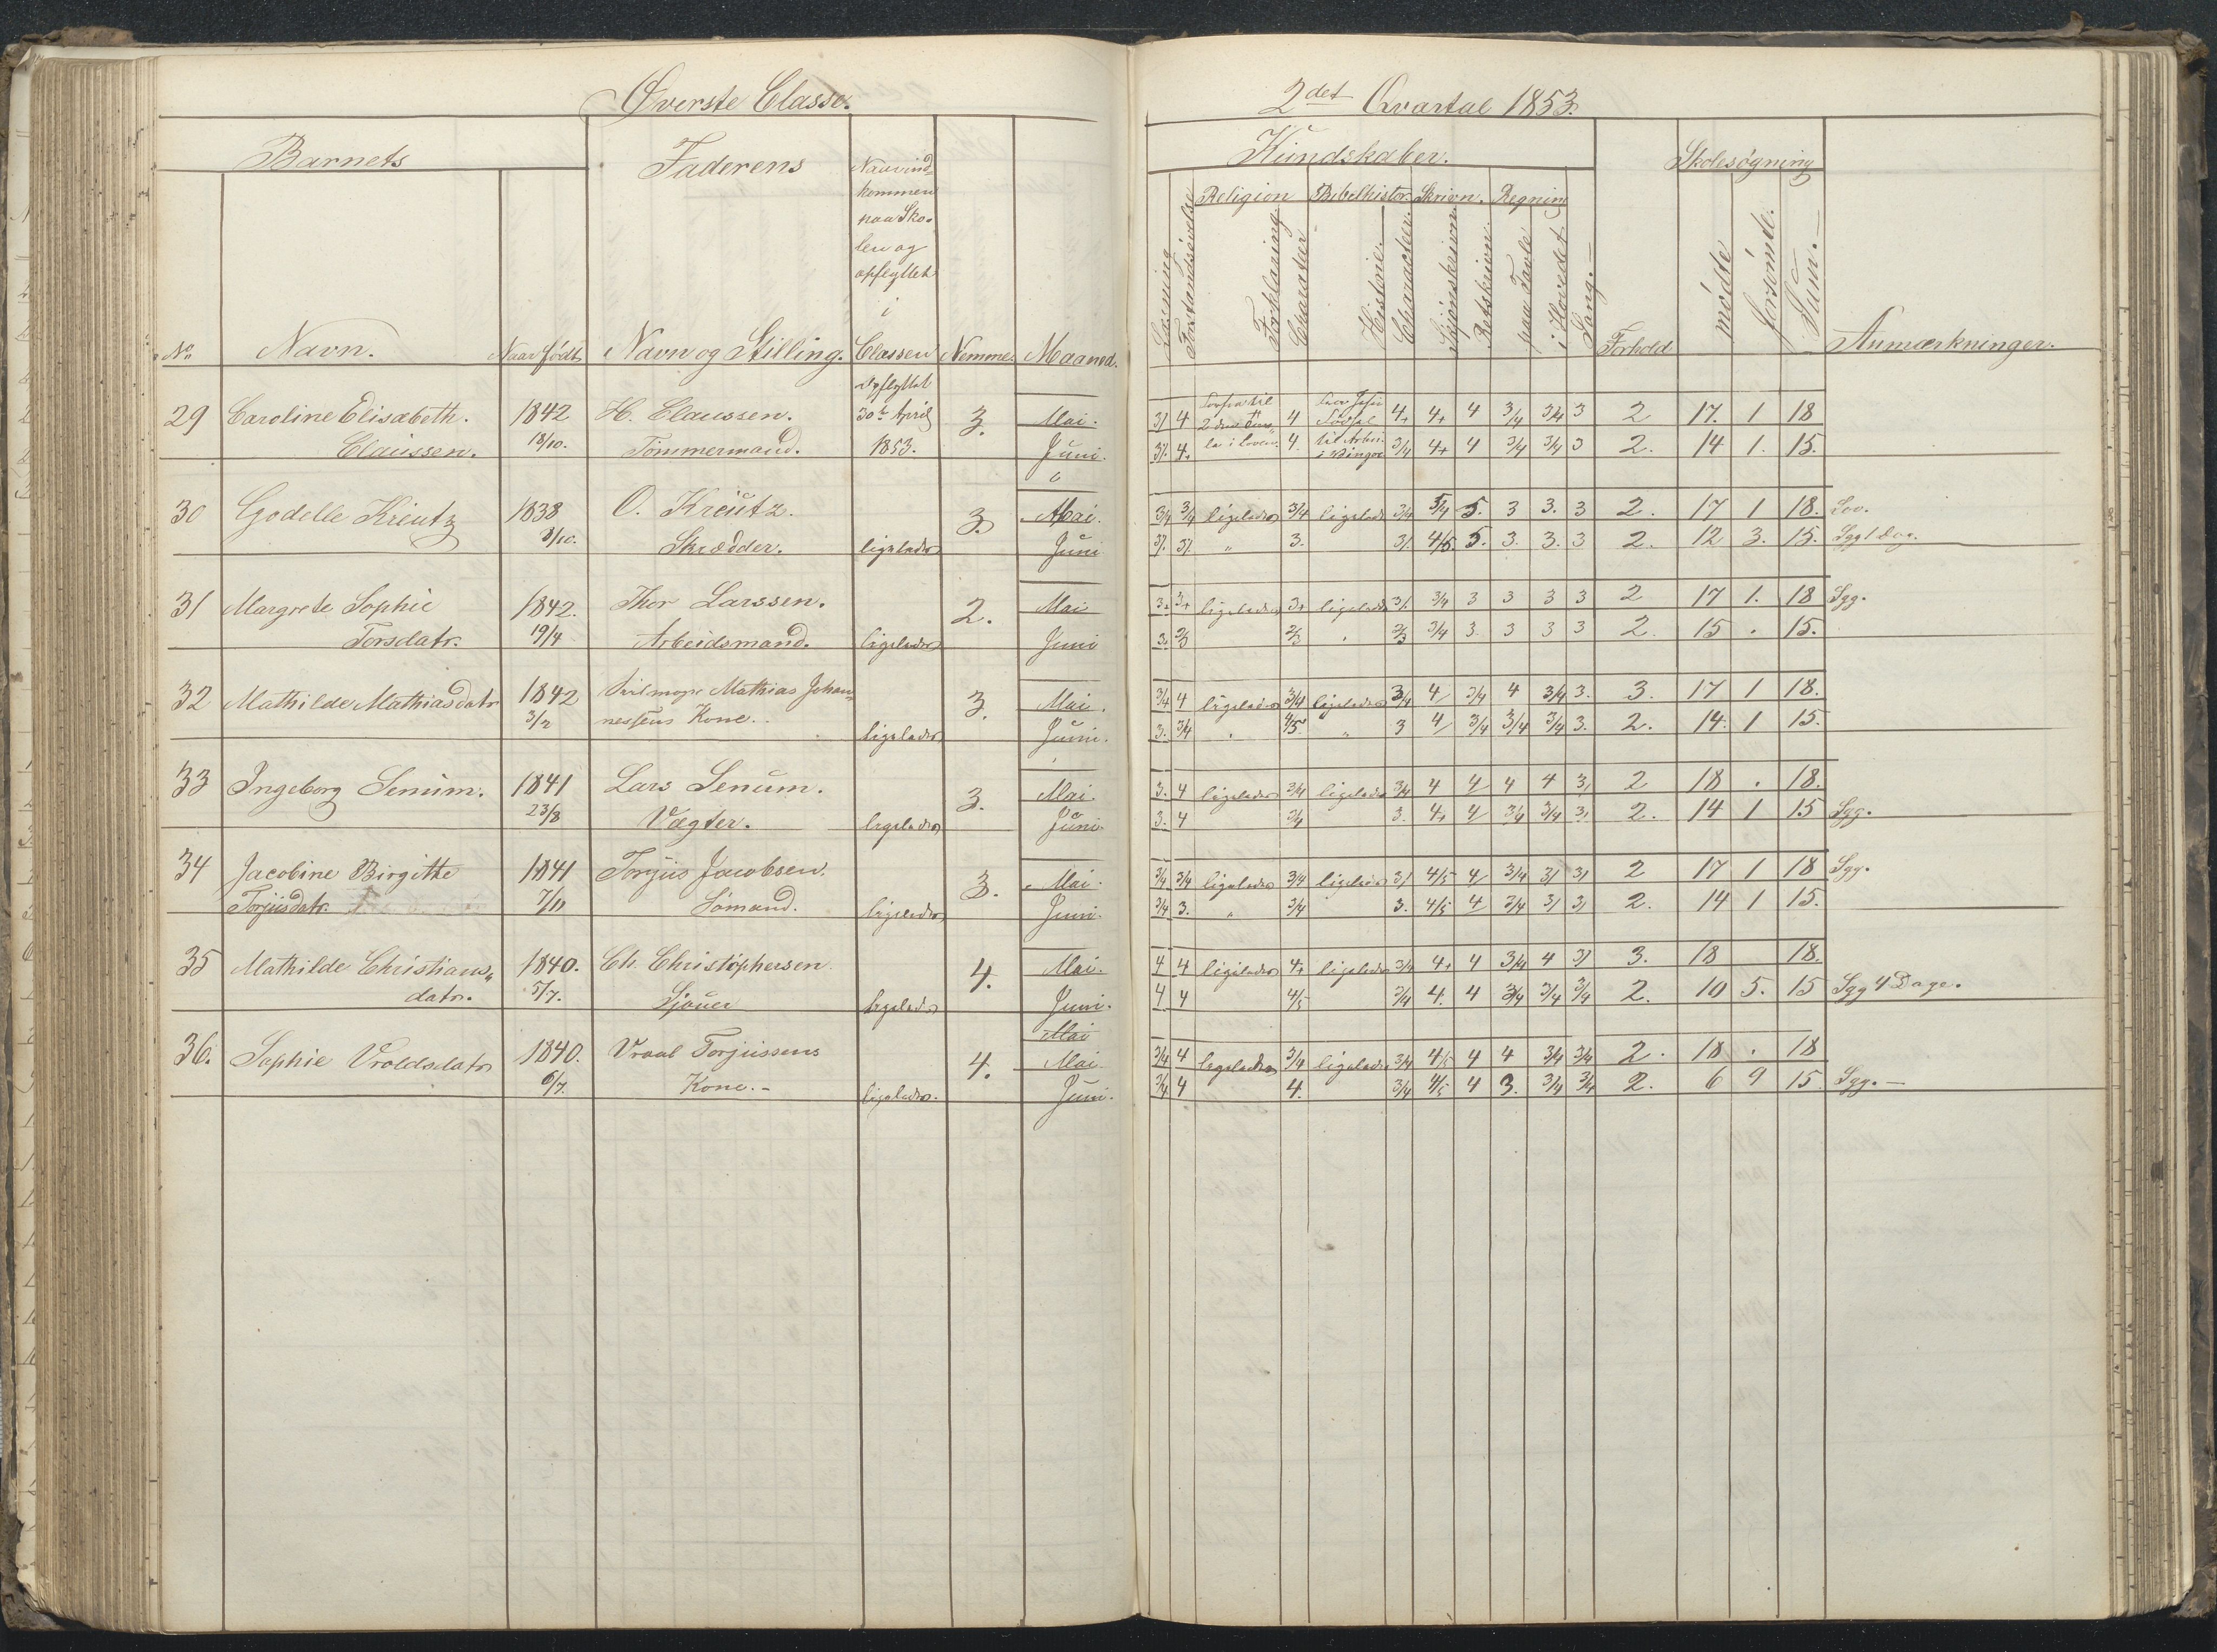 Øverste Classe.
Barnets
Faderens
Naar ind-
kommen
paa Sko-
len og
opflyttet
i
Classen
No
Navn.
Naar født
Navn og Stilling.
Nemme.
Maaned.
29 Caroline Elisabeth. 1842 H. Claussen. Opflyttet 30te April 3. Mai.
Claussen. 18/10. Tömmermand. 1853. Juni.
30 Godelle Kreutz 1838 O. Kreutz. 3. Mai.
3/10. Skrædder. ligeledes Juni
31 Margrete Sophie 1842. Thor Larssen. 2. Mai
Torsdatr. 19/4 Arbeidsmand. ligeledes Juni
32 Mathilde Mathiasdatr 1842 Mathias Johan- 3. Mai.
3/2 nessens Kone. ligeledes Juni.
33 Ingeborg Senum. 1841 Lars Senum. 3. Mai.
23/8 Vægter. ligeledes Juni.
34 Jacobine Birgitte 1841 Torjus Jacobsen. 3. Mai.
Torjusdatr. 7/11 Sömand. ligeledes Juni.
35 Mathilde Christians- 1840. Ch. Christophersen. 4. Mai.
datr. 5/7. Sjouer ligeledes Juni.
Mai
36. Sophie Vroldsdatr 1840. Vraal Torjussens 4. Mai
6/7. Kone.- ligeledes. Juni.
2det Qvartal 1853.
Kundskaber.
Skolesøgning
Religion Bibelhistor. Skrivn. Regning
Læsning
Forstandsøvelse
Forklaring
Charakter
Historie.
Charakter.
Skjönskrivn.
Retskrivn.
paa Tavle
i Hovedet
Sang.-
Forhold
mödte
forsömte.
Sum.-
Anmærkninger.
3/ 4 4 4+ 4+ 4 3/4 3/4 3 2 17. 1 18
3/. 4. 4. 3/4 4+ 4 3/4 3/4 3 2. 14 1. 15.
3/4 3/4 ligeledes 3/4 ligeledes 3/4 5/4 5. 3 3. 3 2. 17 1 18. Lov.
3/. 3/. " 3. 3/. 4/5 5. 3. 3. 3 2. 12 3. 15. Syg 1 Dag.
3+ 3+ ligeledes 3+ ligeledes 3/. 3/4 3 3 3 3 2 17 1. 18 Syg.
3. 2/3 2/3 " 2/3 3/4 3. 3 3 3 2. 15 . 15.
3/4 4 ligeledes 3/4 ligeledes 3/4 4 3/4 4 3/4 3. 3. 17 1 18.
3. 3/4 " 4/5. " 3 4 3/4 3/4 3/4 3. 2. 14. 1 15.
3. 4 ligeledes 3/4 ligeledes 3/4 4 4 4 4 3/ 2 18 . 18.
3. 4 3/4 3. 4+ 4 3/4 3/4 3/ 2. 14 1 15 Syg.
3/4 3/4 ligeledes 3/4 ligeledes 3/ 4/5 4 3/4 3/ 3/ 2 17 1 18 Syg.
3/4 3. " 3/4 3. 4/5 4 3/4 3/ 3/ 2. 14 1 15.
4 4 ligeledes 4+ ligeledes 3/4 4+ 4 3/4 4 3/ 3. 18 18.
4 4 4/5 3/4 4. 4 3/4 3/4 3/4 2. 10 5. 15 Syg 4 Dage.
3/4 4 ligeledes 3/4 ligeledes 3/4 4/5 4 4 3/4 3/4 2. 18 . 18
3/4 4 4. 3/4 4/5 4 3. 3/4 3/4 2. 6 9 15. Syg.-